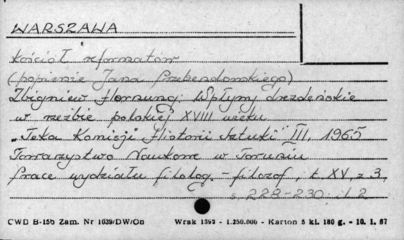 WARSZAWA
Kościół reformatów
(popiersie Jana Przebendowskiego)
Zbigniew Hornung: Wpływy drezdeńskie
w rzeźbie polskiej XVIII wieku
"Teka Komisji Historii Sztuki" III, 1965
Towarzystwo Naukowe w Toruniu
Prace wydziału filolog. - filozof, t. XV, z. 3,
s. 228-230, il. 2
CWD B-156 Zam. Nr 1639/DW/Oo Wrak 1393 - 1.250.000 - Karton 5 kl. 180 g. - 10. 1. 67